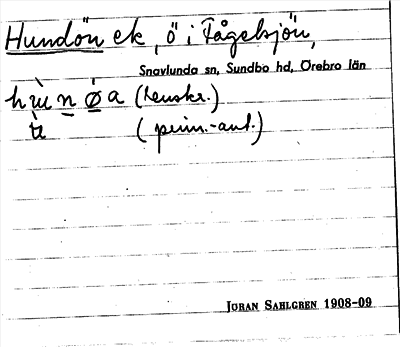 Hundön ek, ö i Fågelsjön,
Snavlunda sn, Sundbo hd, Örebro län
(lenskr.)
(prim.-ant.)
JÖRAN SAHLGREN 1908-09